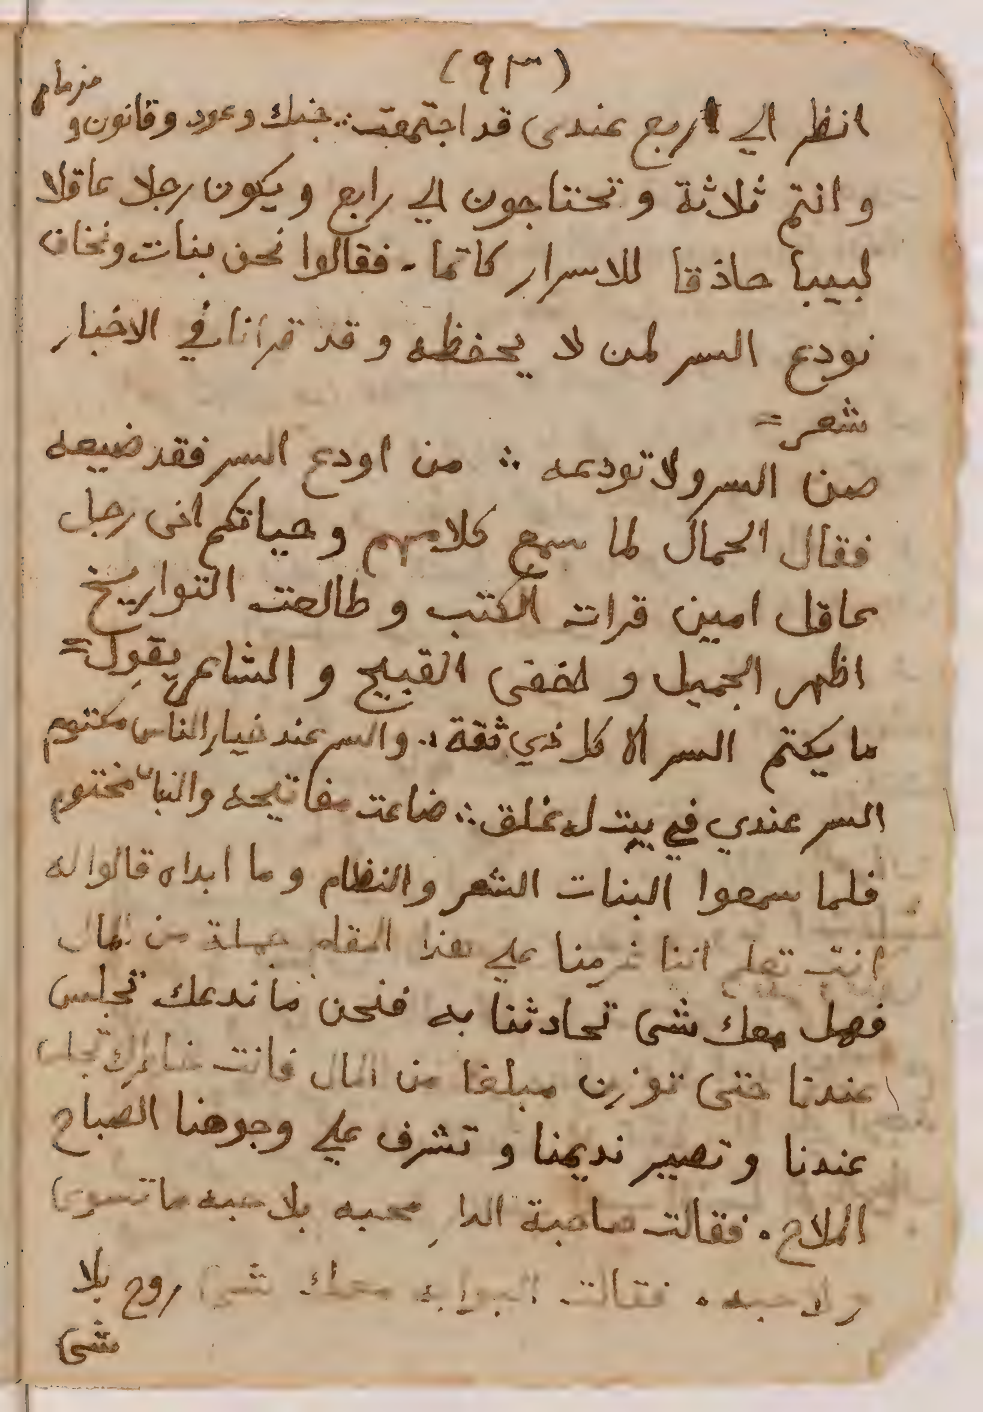 (٩٣)
انظر الي اربع عندى قد اجتمعت ∴ جنك وعود وقانون و مزمار
و انتم ثلاثة و تحتاجون الي رابع و يكون رجلا عاقلا
لبيبا حاذقا للاسرار كاتما - فقالوا نحن بنات ونخاف
نودع السر لمن لا يحفظه و قد قرانا في الاخبار
شعر =
صن السر ولا تودعه ∴ من اودع السر فقد ضيعه
فقال الحمال لما سمع كلامهم و حياتكم انى رجل
عاقل امين قرات الكتب و طالعت التواريخ
اظهر الجميل و اخفى القبيح و الشاعر يقول =
ما يكتم السر الا كل ذي ثقة ∴ والسر عند خيار الناس مكتوم
السر عندي في بيت له غلق ∴ ضاعت مفاتيحه والباب مختوم
فلما سمعوا البنات الشعر والنظام و ما ابداه قالوا له
انت تعلم اننا غرمنا علي هذا المقام جملة من المال
فهل معك شى تحادثنا به فنحن ما ندعك تجلس
عندنا حتى توزن مبلغا من المال فانت تجلس
عندنا و تصير نديمنا و تشرف علي وجوهنا الصباح
الملاح . فقالت صاحبة الدار محبه بلا حبه ما تسوى
ولا حبه . فقالت البوابه معك شى روح بلا
شى